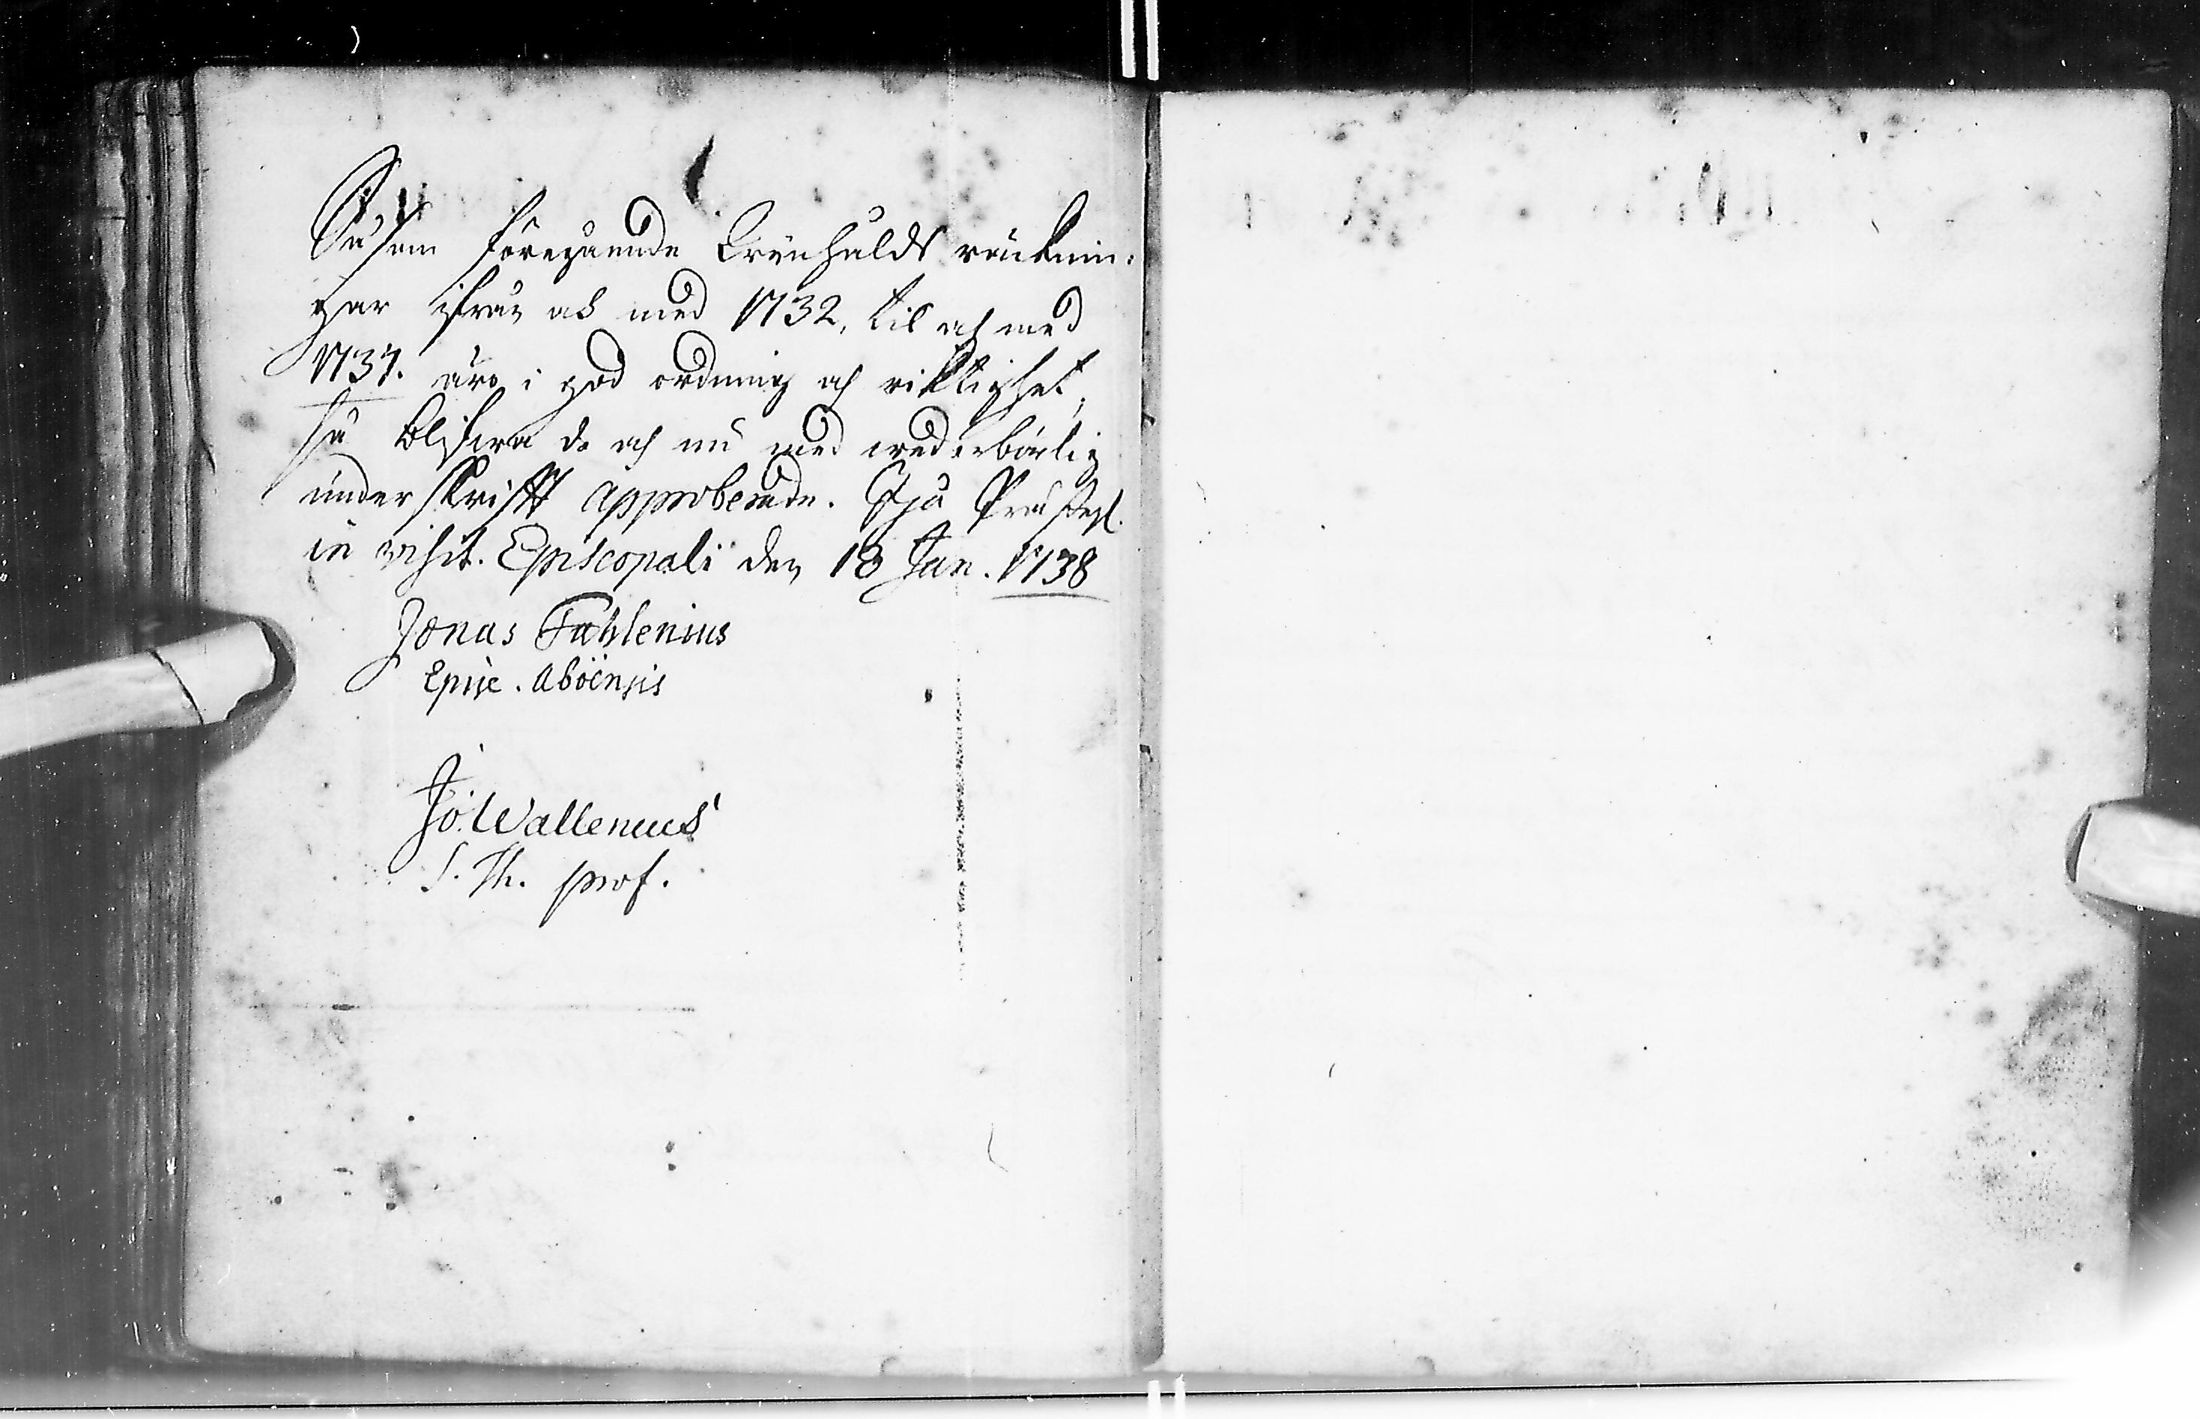 Såsom föregående Brynhalds räcknin:
gar ifrån och med 1732, til och med
1737. äro i god ordning och riktighet,
så blifwa de och nu med wederbörlig
underskrifft approberade. Prästeg.
in visit. Episcopali den 13 Jan. 1738
Jonas Fahlenius
Episc. Aböensis
Jo. Wallenius
S. Th. prof.